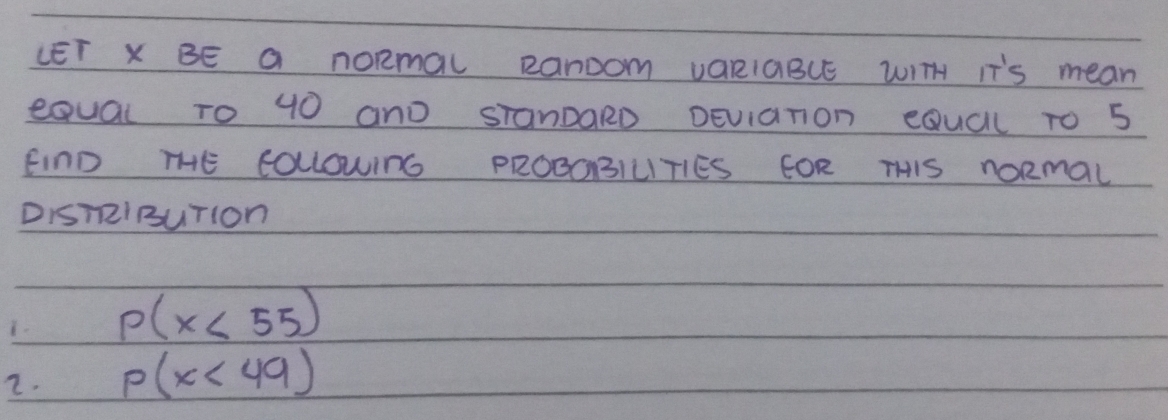 LET X BE a nORMAL RanDOM VARIABLE WITH IT'S mean
EQUAL TO 40 anD STanDARD DEVIATION EQUAL TO 5
FIND THE FOLLOWING PROBABILITIES FOR THIS nORMAL
DISTRIBUTION
1. P(x < 55)
2. P(x < 49)